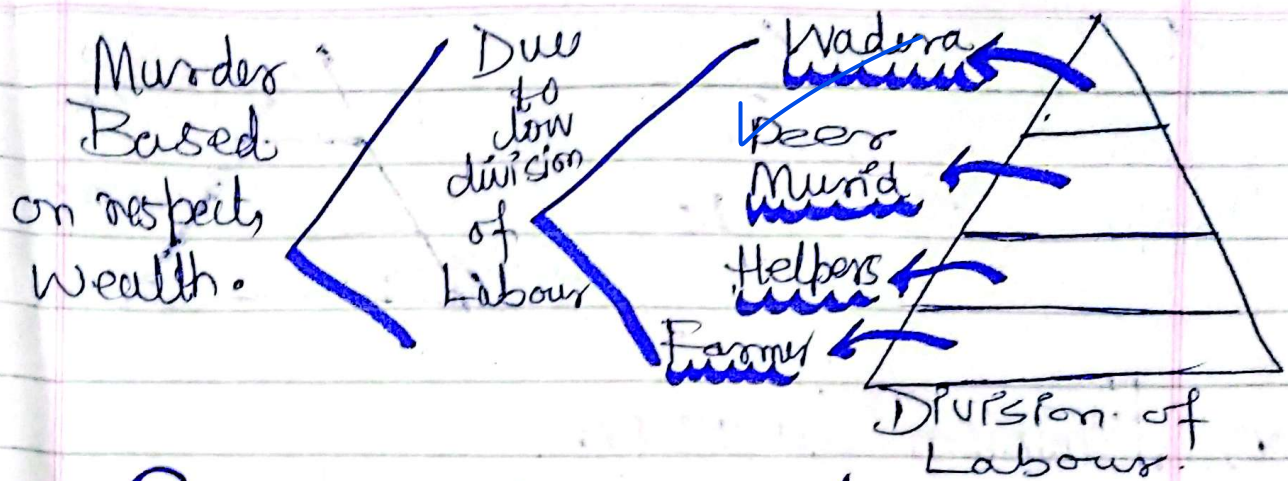 Murder
Based
on respect,
Wealth.
Due
to
low
division
of
Labour
Wadera
Peer
Murid
Helpers
Farmer
Division of
Labour.